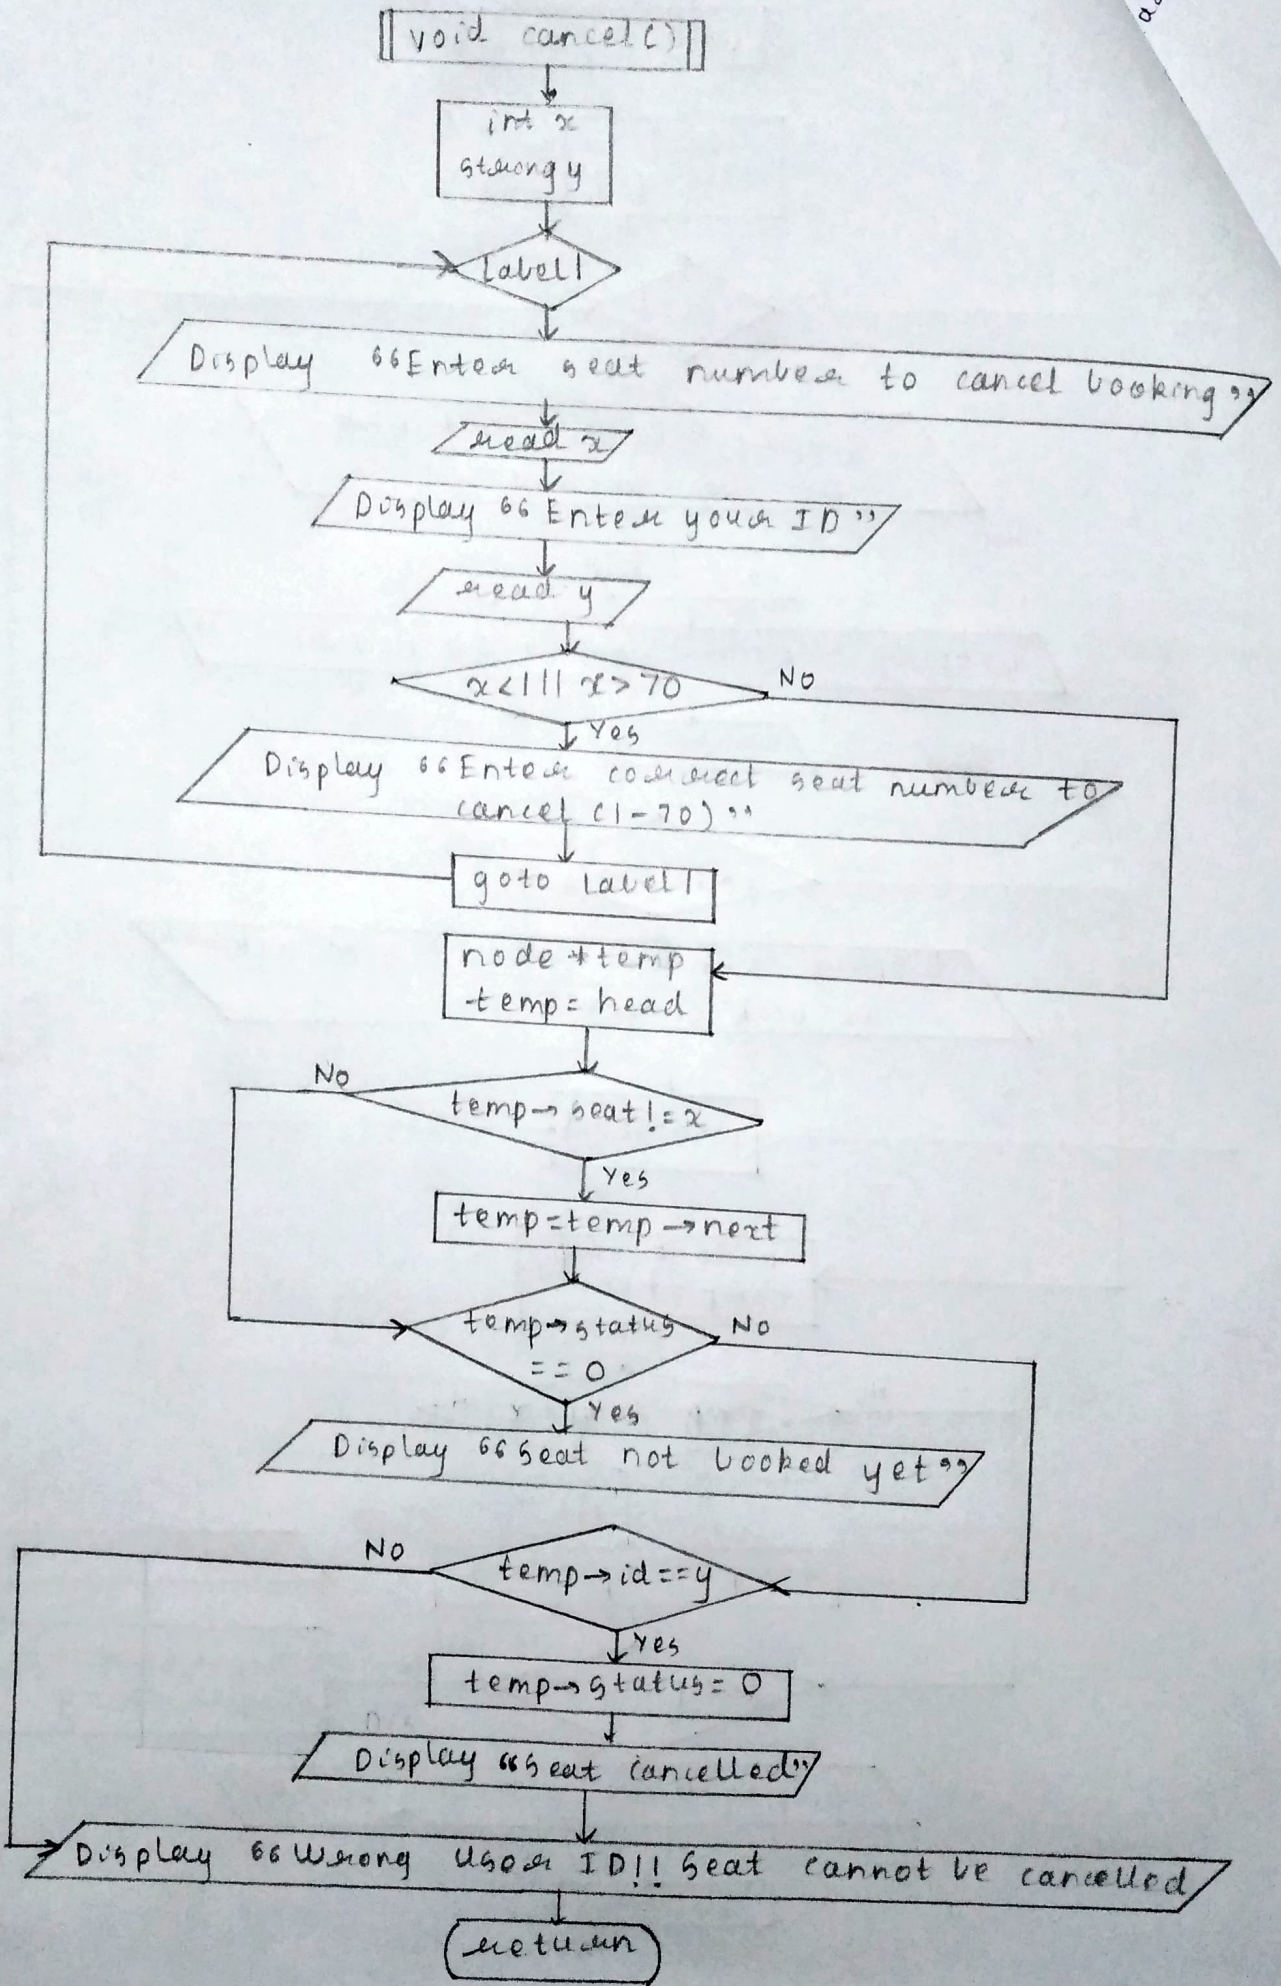 void cancel()
int x
string y
label1
Display “Enter seat number to cancel booking”
read x
Display “Enter your ID”
read y
x<1 || x>70
No
Yes
Display “Enter correct seat number to
cancel (1-70)”
goto label1
node *temp
temp = head
No
temp→seat!=x
Yes
temp=temp→next
temp→status
No
==0
Yes
Display “Seat not booked yet”
No
temp→id==y
Yes
temp→status=0
Display “Seat cancelled”
Display “Wrong User ID!! Seat cannot be cancelled
return